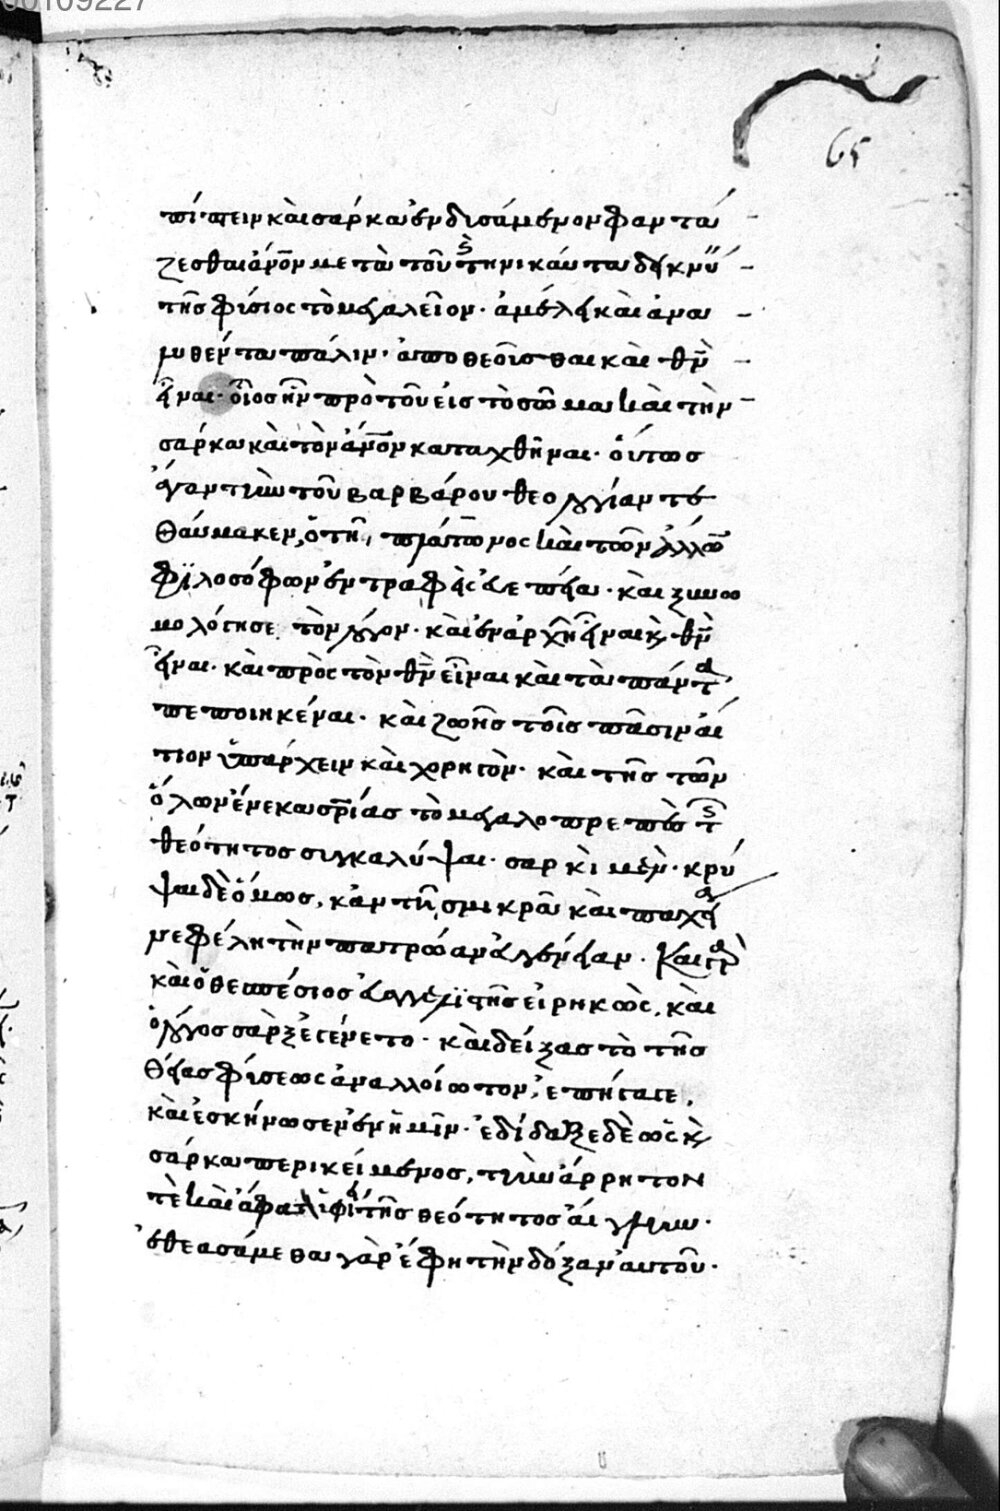 00109227
65
πίπτειν καὶ σάρκα ἐνδισάμενον φαντά
ζεσθαι ἄνον μετὰ τοῦ τηνικάυτα δεικνύ
τῆς φύσιος τὸ μεγαλεῖον· ἀμέλει καὶ ἀνα
λυθέντα πάλιν· ἀποθεοῖσθαι καὶ θν
εἶναι· οἷος ἦν πρὸ τοῦ εἰς τὸ σῶμα καὶ τὴν
σάρκα καὶ τὸν ἄνον καταχθῆναι· ὅυτως
ἄγαν τὴν τοῦ βαρβάρου θεολογίαν τε
θαύμακεν, ὁ τῆ πλάτωνος καὶ τῶν ἄλλων
φιλοσόφων ἐντραφεὶς καὶ ξυνω
μολόγησε τὸν λόγον· καὶ ἐν ἀρχῆ εἶναι κ θν
εἶναι· καὶ πρὸς τὸν θν εἶναι καὶ τὰ πάντα
πεποιηκέναι· καὶ ζωῆς τοῖς πᾶσιν αἴ
τιον ὑπάρχειν καὶ χορηγὸν· καὶ τῆς τῶν
ὅλων ἕνεκα σρίας τὸ μεγαλοπρεπὲς τῆς
θεότητος συγκαλύψαι· σαρκὶ μὲν· κρύ
ψαι δὲ ὅμως, κἀν τῆ σμικρᾶ καὶ παχεία
νεφέλη τὴν πατρώαν εὐγένειαν· καὶ γὰρ
καὶ ὁ θεσπέσιος εὐαγγελϊστῆς εἰρηκὼς, καὶ
ὁ λόγος σὰρξ ἐγένετο· καὶ δείξας τὸ τῆς
θείας φύσεως ἀναλλοίωτον, ἐπήγαγε,
καὶ ἐσκήνωσεν ἐν ἡμῖν· ἐδίδαξε δὲ ὡς κ
σάρκα περικείμενος, τὴν ἄρρητον
τῆς θεότητος αἴγλην·
ἐθεασάμεθα γὰρ ἔφη τὴν δόξαν αὐτοῦ·